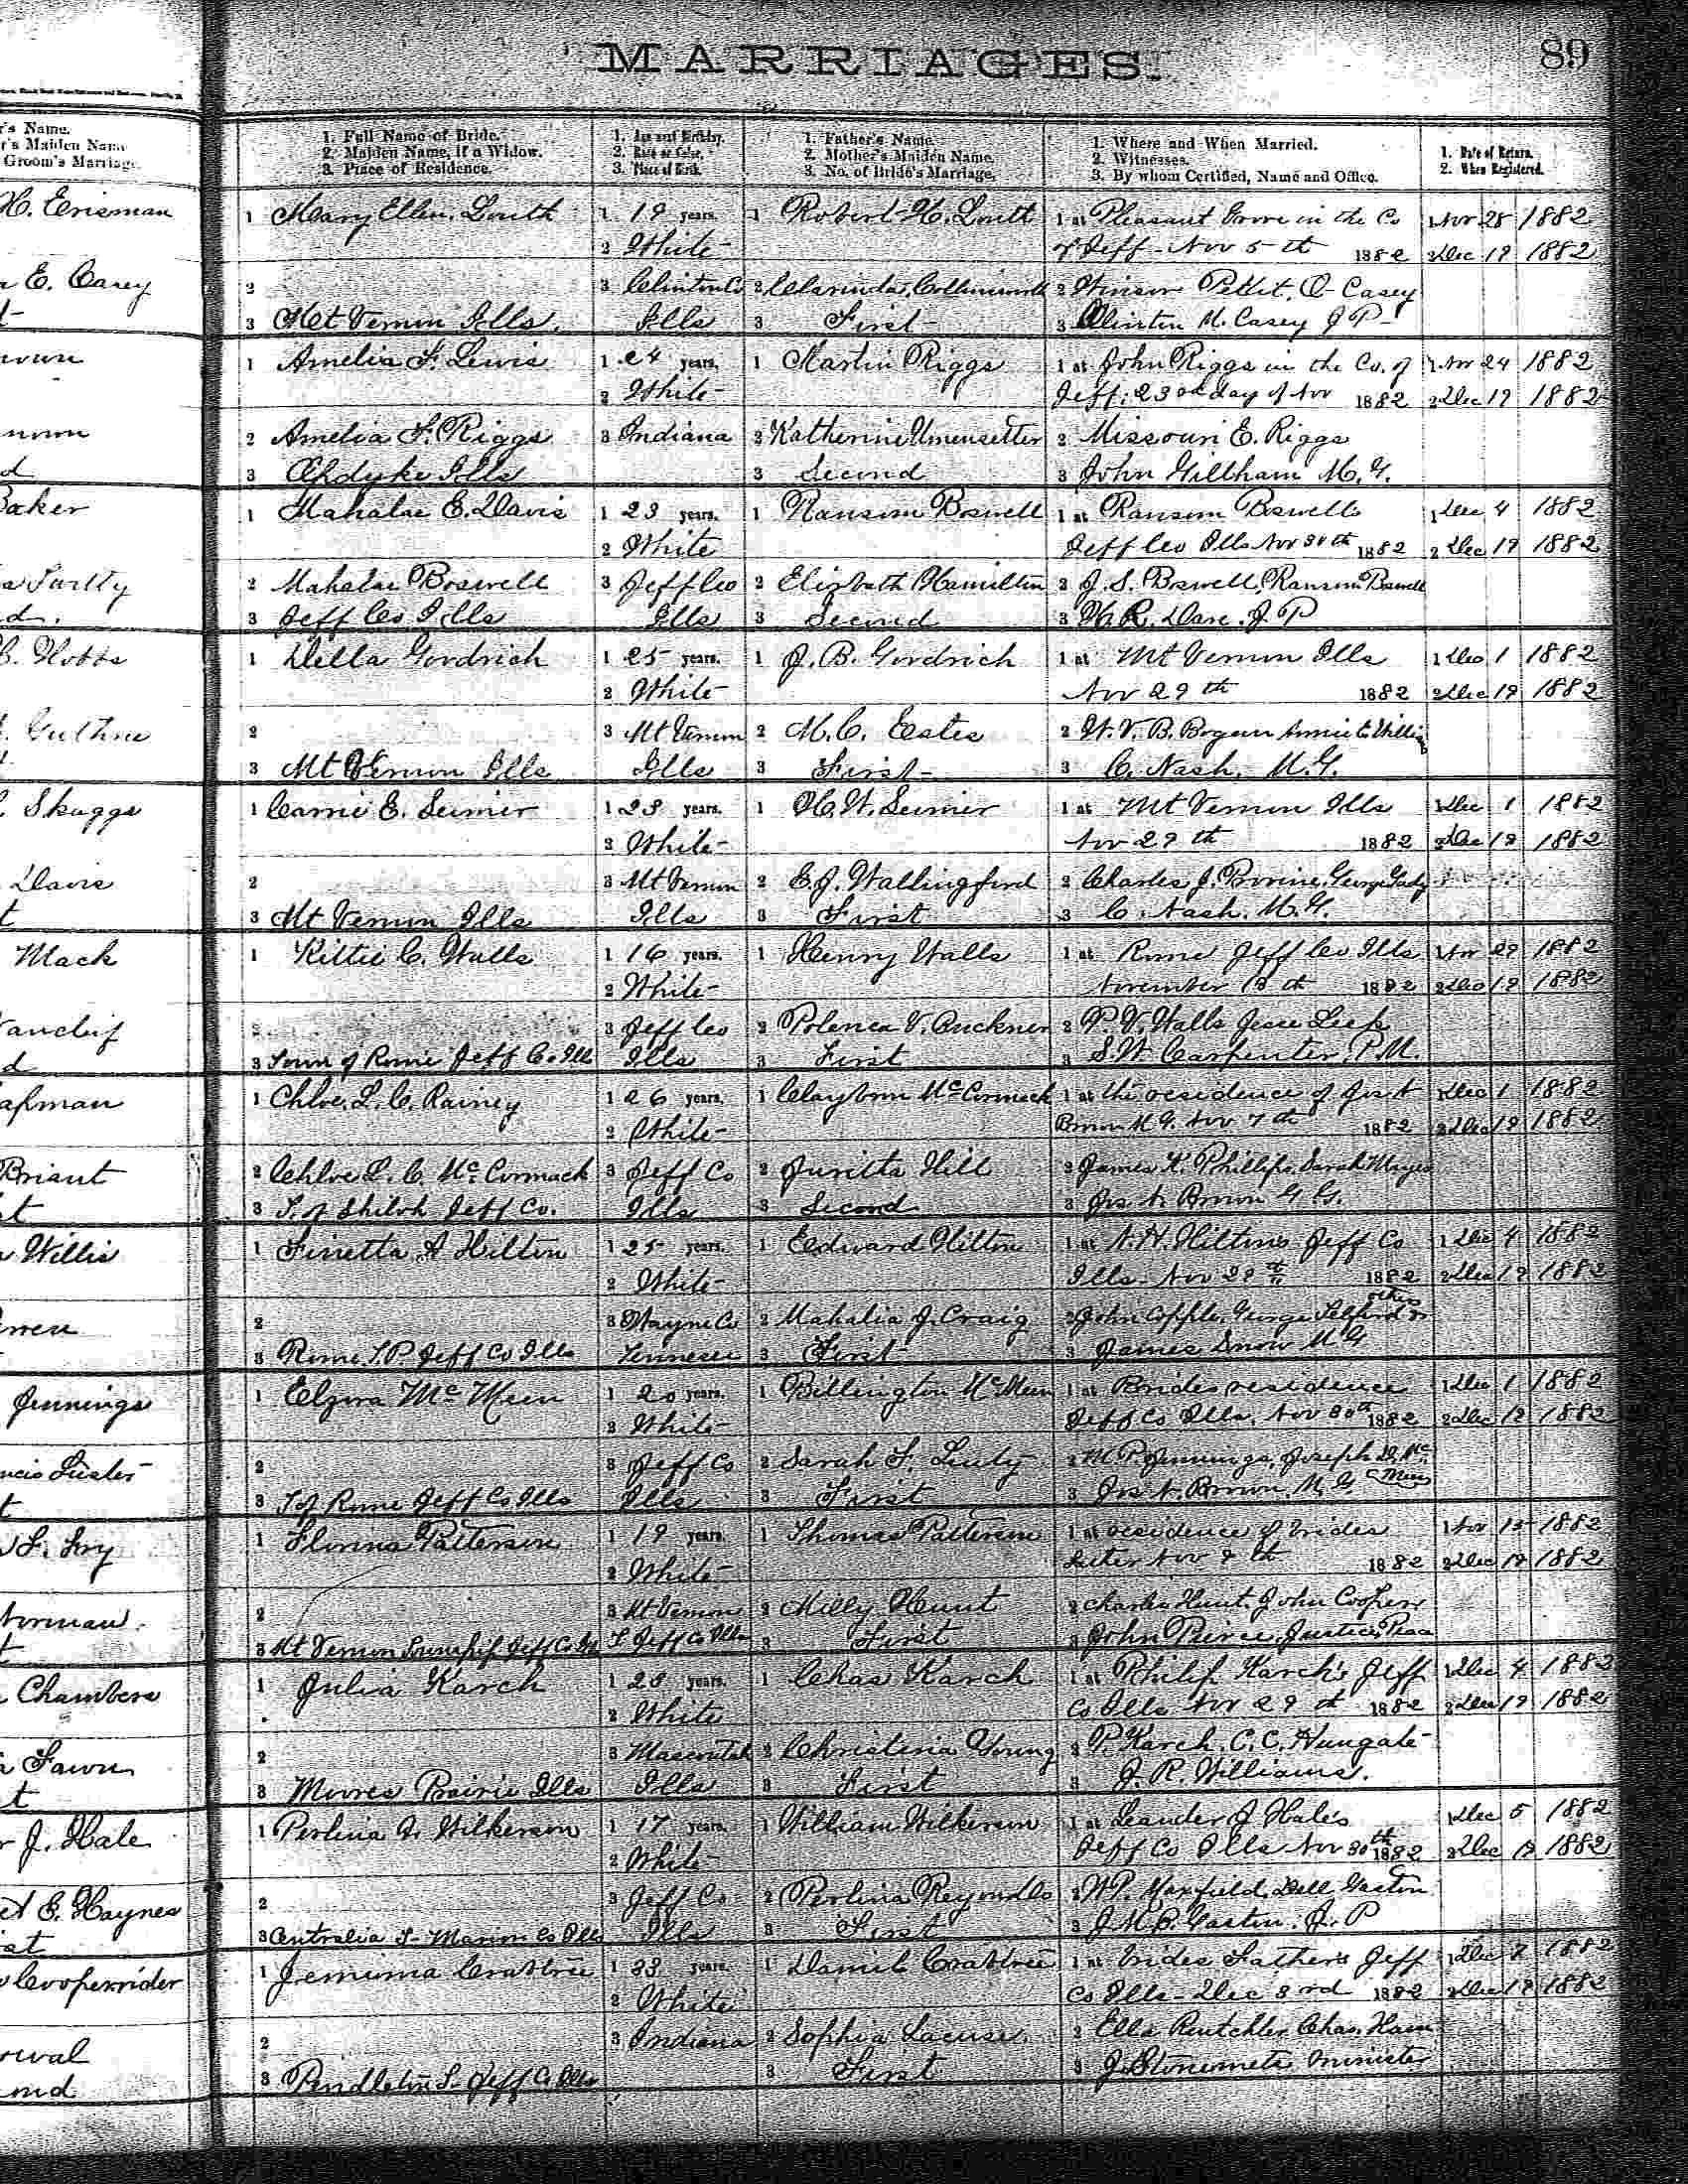 MARRIAGES.
89
r's Name.
r's Maiden Name
Groom's Marriage.
1. Full Name of Bride.
2. Maiden Name, if a Widow.
3. Place of Residence.
1. Age next Birthday.
2. Race or Color.
3. Place of Birth.
1. Father's Name.
2. Mother's Maiden Name.
3. No. of Bride's Marriage.
1. Where and When Married.
2. Witnesses.
3. By whom Certified, Name and Office.
1. Date of Return.
2. When Registered.
H. Erisman
1 Mary Ellen Louth 1 19 years. 1 Robert H. Louth 1 at Pleasant Grove in the Co 1 Nov 28 1882
2 White of Jeff - Nov 5th 1882 2 Dec 19 1882
E. Casey
2 3 Clinton Co 2 Clarinda 2 Pettit, Casey
3 Mt Vernon Ills. Ills 3 First 3 Clinton M. Casey J P
1 Amelia F. Lewis 1 24 years. 1 Martin Riggs 1 at John Riggs in the Co. of 1 Nov 24 1882
2 White Jeff. 23rd day of Nov 1882 2 Dec 19 1882
2 Amelia F. Riggs 3 Indiana 2 Katherine Umensetter 2 Missouri E. Riggs
3 Opdyke Ills 3 Second 3 John Gillham M. G.
Baker
1 Mahalae E. Davis 1 23 years. 1 Ransom Boswell 1 at Ransom Boswells 1 Dec 4 1882
2 White Jeff Co Ills Nov 30th 1882 2 Dec 19 1882
2 Mahalae Boswell 3 Jeff Co 2 Elizbeth Hamilton 2 J. S. Boswell, Ransom Boswell
3 Jeff Co Ills Ills 3 Second 3 J. P
C. Hobbs
1 Della Gordrich 1 25 years. 1 J. B. Gordrich 1 at Mt Vernon Ills 1 Dec 1 1882
2 White Nov 29th 1882 2 Dec 19 1882
Guthrie
2 3 Mt Vernon 2 M. C. Estes 2 W. V. B. Bogan Annie E
3 Mt Vernon Ills Ills 3 First 3 C. Nash. M. G.
Skaggs
1 Carrie E. Seimer 1 23 years. 1 H. W. Seimer 1 at Mt Vernon Ills 1 Dec 1 1882
2 White Nov 29th 1882 2 Dec 19 1882
Davis
2 3 Mt Vernon 2 E. J. Wallingford 2 Charles J. George
3 Mt Vernon Ills Ills 3 First 3 C. Nash. M. G.
Mack
1 Kittie C. Walls 1 16 years. 1 Henry Walls 1 at Rome Jeff Co Ills 1 Nov 29 1882
2 White November 1882 2 Dec 19 1882
2 3 Jeff Co 2 V. Buckner 2 P. V. Walls Jesse
3 Town of Rome Jeff Co. Ills Ills 3 First 3 S. W. Carpenter, P. M.
1 Chloe. L. C. Rainey 1 26 years. 1 Clayborn McCormack 1 at the residence of Jos A 1 Dec 1 1882
2 White Brown M G. Nov 7th 1882 2 Dec 19 1882
Briant
2 Chloe L. C. McCormack 3 Jeff Co 2 Juritta Hill 2 James K. Phillips, Sarah
3 T. of Shiloh Jeff Co. Ills 3 Second 3 Jos A. Brown
Willis
1 Finetta A Hilton 1 25 years. 1 Edward Hilton 1 at Hiltons Jeff Co 1 Dec 4 1882
2 White Ills - Nov 1882 2 Dec 19 1882
2 3 Wayne Co 2 Mahalia J. Craig 2 John Copple, George Telford & others
3 Rome T. P. Jeff Co Ills Tennessee 3 First 3 James Snow M G
Jennings
1 Elzora McMeen 1 20 years. 1 Billington McMeen 1 at Brides residence 1 Dec 1 1882
2 White Jeff Co Ills, Nov 30th 1882 2 Dec 19 1882
2 3 Jeff Co 2 Sarah F. 2 M. P. Jennings, Joseph D. McMeen
3 T of Rome Jeff Co Ills Ills 3 First 3 Jos A. Brown, M. G
1 Patterson 1 19 years. 1 Thomas Patterson 1 at residence of brides 1 Nov 15 1882
2 White Nov 1882 2 Dec 19 1882
Norman
2 3 Mt Vernon 2 Milly Hunt 2 Charles Hunt, John Cooper
3 Mt Vernon Township Jeff Co Ills T Jeff Co Ills 3 First 3 John Pierce, Justice Peace
Chambers
1 Julia Karch 1 23 years. 1 Chas Karch 1 at Philip Karch's Jeff 1 Dec 4 1882
2 White Co Ills Nov 29th 1882 2 Dec 19 1882
Fawn
2 3 Mascoutah 2 Christena Young 2 P. Karch, C. C. Hungate
3 Moores Prairie Ills Ills 3 First 3 J. R. Williams.
J. Hale
1 Perlina A. Wilkerson 1 17 years. 1 William Wilkerson 1 at Leander J Hale's 1 Dec 5 1882
2 White Jeff Co Ills Nov 30th 1882 2 Dec 19 1882
E. Haynes
2 3 Jeff Co 2 Perlina Reynolds 2 W. P. Maxfield, Dell Gaston
3 Centralia T- Marion Co Ills Ills 3 First 3 J. M. B. Gaston. J. P
Cooperrider
1 Jemima Crabtree 1 33 years. 1 Daniel Crabtree 1 at brides Fathers Jeff 1 Dec 7 1882
2 White Co Ills - Dec 3rd 1882 2 Dec 19 1882
2 3 Indiana 2 Sophia 2 Ella Rentchler, Chas. Ham
3 Pendleton T- Jeff Co. Ills 3 First 3 minister